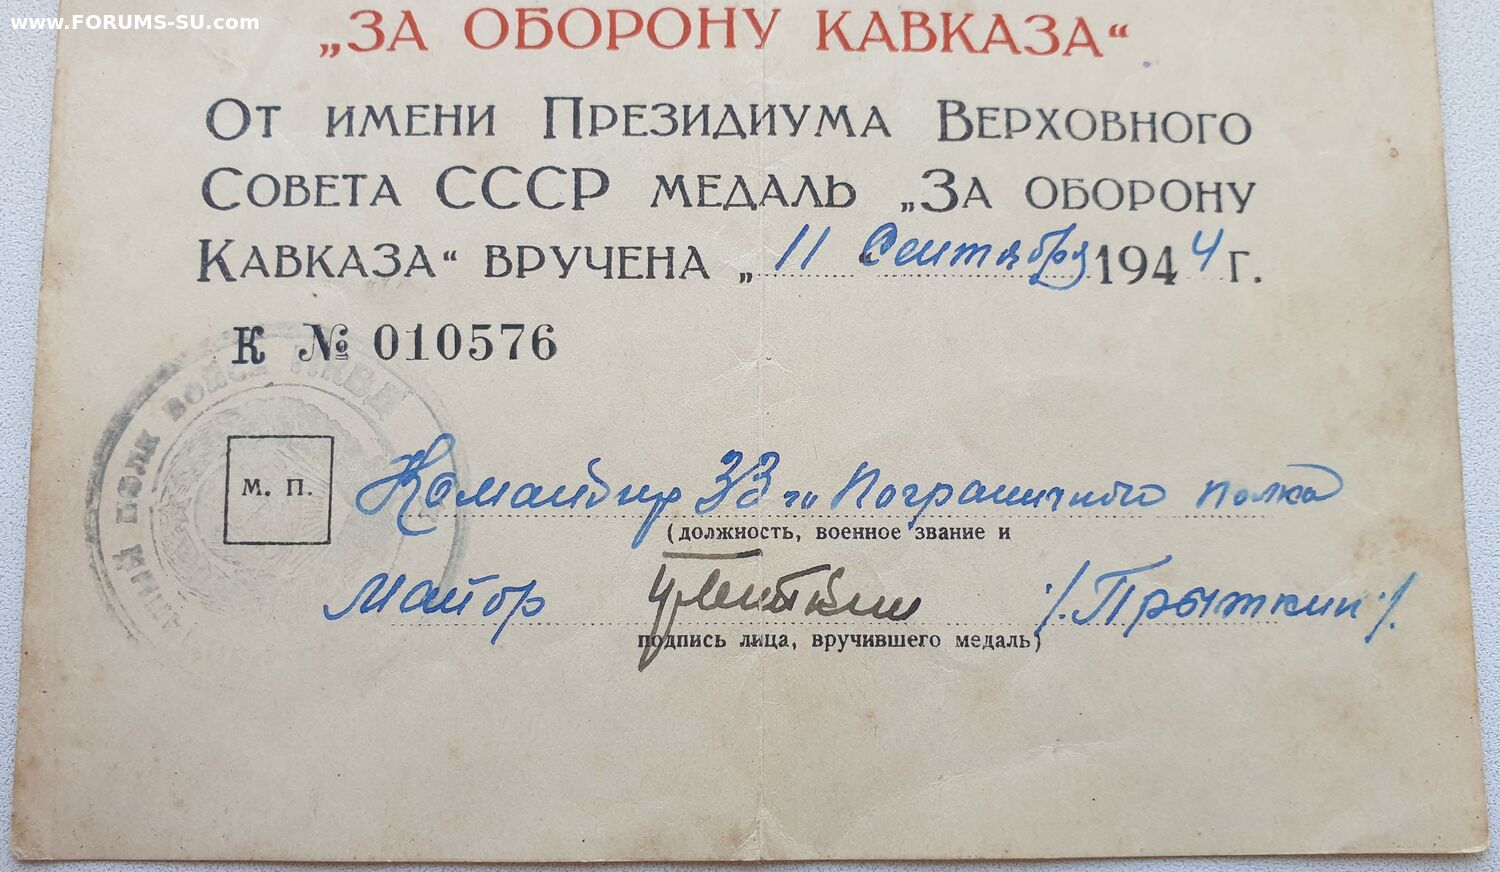 www.FORUMS-SU.com
„ЗА ОБОРОНУ КАВКАЗА“
От имени Президиума Верховного
Совета СССР медаль „За оборону
Кавказа“ вручена „ 11 Сентября 1944 г.
К № 010576
ПОЛК ВОЙСК НКВД
М. П.
Командир 33 го Пограничного полка
(должность, военное звание и
Майор /.Прыткин./
подпись лица, вручившего медаль)